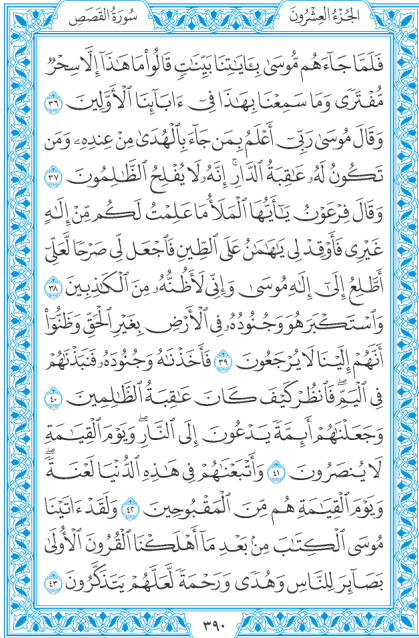 الجُزْءُ العِشْرُونَ سُورَةُ القَصَصِ
فَلَمَّا جَآءَهُم مُّوسَىٰ بِـَٔايَٰتِنَا بَيِّنَٰتٍ قَالُوا۟ مَا هَٰذَآ إِلَّا سِحْرٌ
مُّفْتَرًى وَمَا سَمِعْنَا بِهَٰذَا فِىٓ ءَابَآئِنَا ٱلْأَوَّلِينَ ٣٦
وَقَالَ مُوسَىٰ رَبِّىٓ أَعْلَمُ بِمَن جَآءَ بِٱلْهُدَىٰ مِنْ عِندِهِۦ وَمَن
تَكُونُ لَهُۥ عَٰقِبَةُ ٱلدَّارِ ۖ إِنَّهُۥ لَا يُفْلِحُ ٱلظَّٰلِمُونَ ٣٧
وَقَالَ فِرْعَوْنُ يَٰٓأَيُّهَا ٱلْمَلَأُ مَا عَلِمْتُ لَكُم مِّنْ إِلَٰهٍ
غَيْرِى فَأَوْقِدْ لِى يَٰهَٰمَٰنُ عَلَى ٱلطِّينِ فَٱجْعَل لِّى صَرْحًا لَّعَلِّىٓ
أَطَّلِعُ إِلَىٰٓ إِلَٰهِ مُوسَىٰ وَإِنِّى لَأَظُنُّهُۥ مِنَ ٱلْكَٰذِبِينَ ٣٨
وَٱسْتَكْبَرَ هُوَ وَجُنُودُهُۥ فِى ٱلْأَرْضِ بِغَيْرِ ٱلْحَقِّ وَظَنُّوٓا۟
أَنَّهُمْ إِلَيْنَا لَا يُرْجَعُونَ ٣٩ فَأَخَذْنَٰهُ وَجُنُودَهُۥ فَنَبَذْنَٰهُمْ
فِى ٱلْيَمِّ ۖ فَٱنظُرْ كَيْفَ كَانَ عَٰقِبَةُ ٱلظَّٰلِمِينَ ٤٠
وَجَعَلْنَٰهُمْ أَئِمَّةً يَدْعُونَ إِلَى ٱلنَّارِ ۖ وَيَوْمَ ٱلْقِيَٰمَةِ
لَا يُنصَرُونَ ٤١ وَأَتْبَعْنَٰهُمْ فِى هَٰذِهِ ٱلدُّنْيَا لَعْنَةً ۖ
وَيَوْمَ ٱلْقِيَٰمَةِ هُم مِّنَ ٱلْمَقْبُوحِينَ ٤٢ وَلَقَدْ ءَاتَيْنَا
مُوسَى ٱلْكِتَٰبَ مِنۢ بَعْدِ مَآ أَهْلَكْنَا ٱلْقُرُونَ ٱلْأُولَىٰ
بَصَآئِرَ لِلنَّاسِ وَهُدًى وَرَحْمَةً لَّعَلَّهُمْ يَتَذَكَّرُونَ ٤٣
٣٩٠